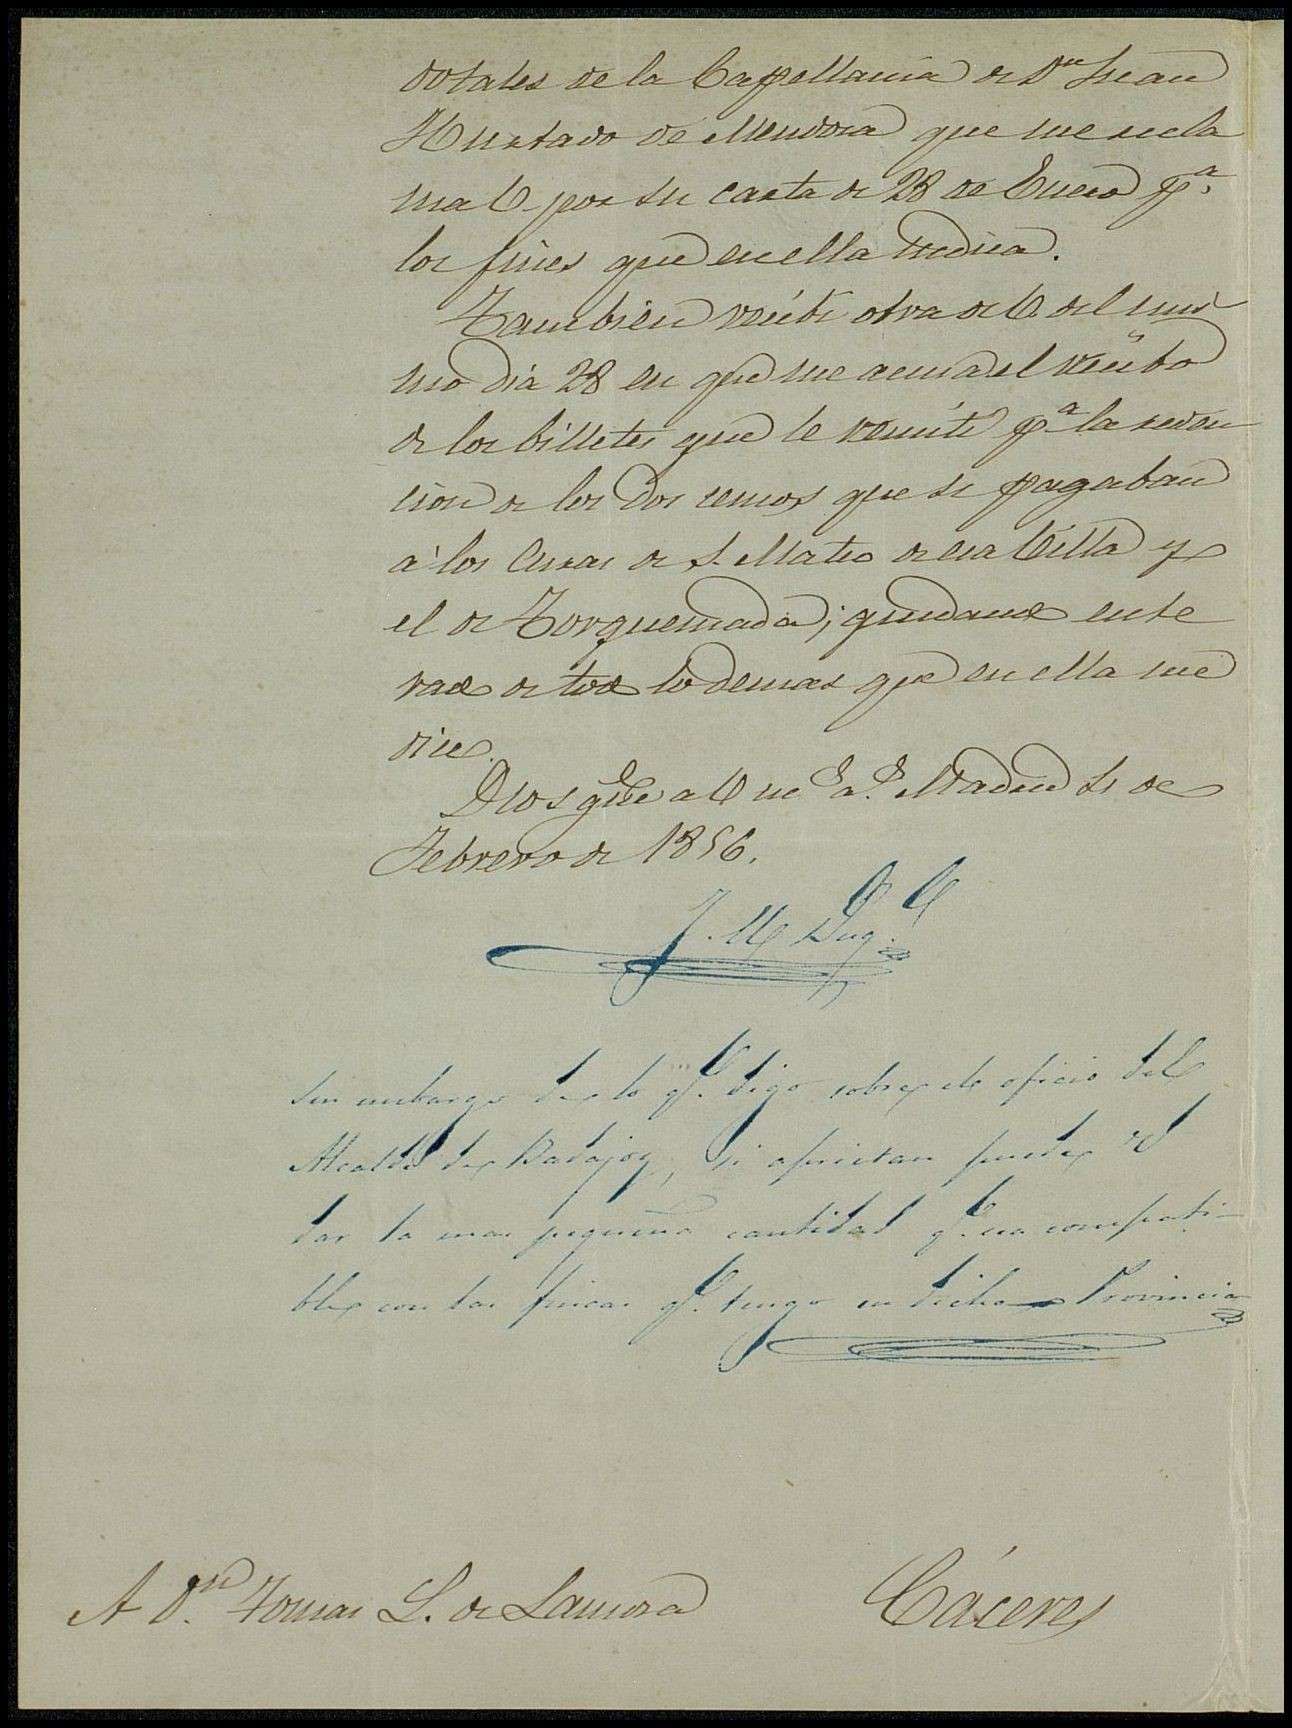 dotales de la Cappellania de Dn Juan
Hurtado de Mendoza que me recla
ma V. por su carta de 28 de Enero pa.
los fines que en ella indica.
Tambien recibi otra de V. del mis
mo dia 28 en que me acusa el recibo
de los billetes que le remiti pa la reden
cion de los dos censos que se pagaban
à los Curas de S. Mateo de esa Villa y
el de Torquemada; quedando ente
rado de todo lo demas que en ella me
dice.
Dios gue a V. ms as. Madrid de
Febrero de 1856.
J. M.
Sin embargo de lo q. digo sobre el oficio del
Alcalde de Badajoz, si aprietan puede Vd
dar la mas pequeña cantidad q. sea compati-
ble con las fincas q. tengo en dicha Provincia
A Dn. Tomas L. de Lamora
Cáceres